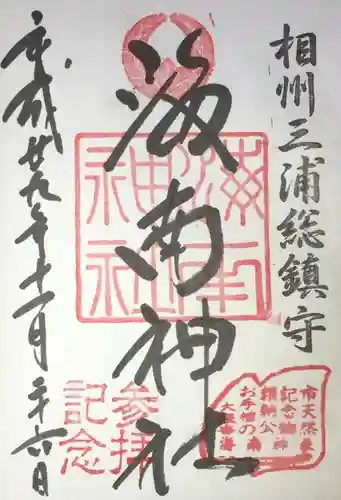 相州三浦総鎮守
海南神社
平成廿九年十一月二十六日
海南神社
参拝
記念